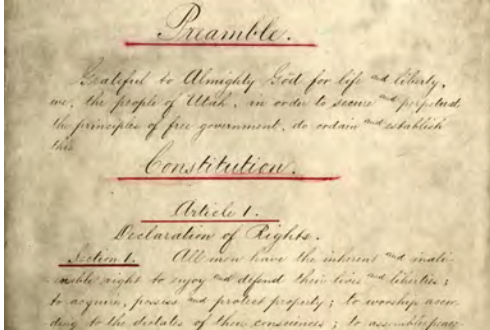 Preamble.
Grateful to Almighty God for life and liberty,
we, the people of Utah, in order to secure and perpetuate
the principles of free government, do ordain and establish
this
Constitution.
Article 1.
Declaration of Rights.
Section 1. All men have the inherent and inali-
enable right to enjoy and defend their lives and liberties;
to acquire, possess and protect property; to worship accor-
ding to the dictates of their consciences; to assemble peace-